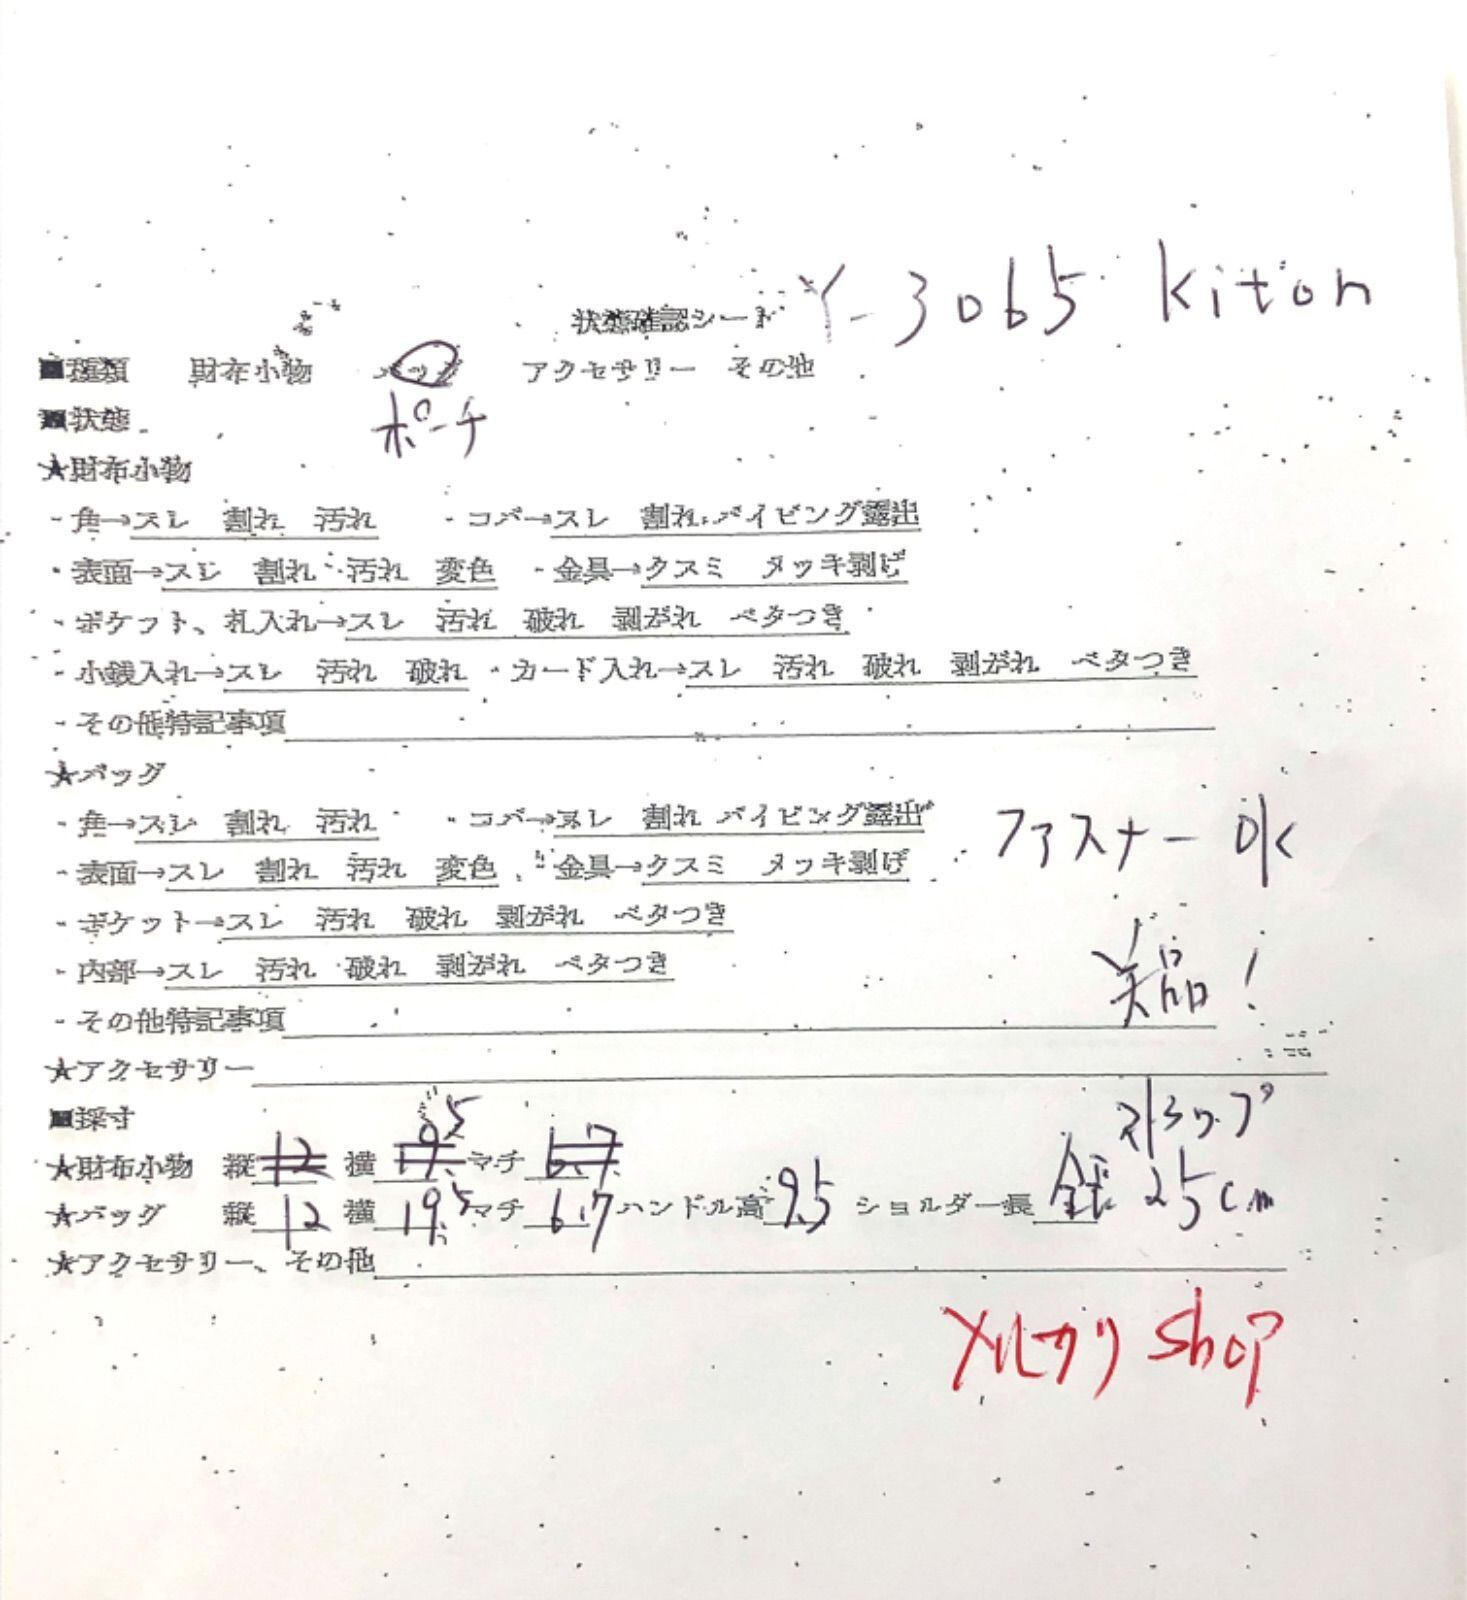 状態確認シート Y-3065 kiton
■種類 財布小物 バッグ アクセサリー その他
■状態 ポーチ
★財布小物
・角→スレ 割れ 汚れ ・コバ→スレ 割れ パイピング露出
・表面→スレ 割れ 汚れ 変色 ・金具→クスミ メッキ剥げ
・ポケット、札入れ→スレ 汚れ 破れ 剥がれ ベタつき
・小銭入れ→スレ 汚れ 破れ ・カード入れ→スレ 汚れ 破れ 剥がれ ベタつき
・その他特記事項
★バッグ
・角→スレ 割れ 汚れ ・コバ→スレ 割れ パイピング露出 ファスナー OK
・表面→スレ 割れ 汚れ 変色 ・金具→クスミ メッキ剥げ
・ポケット→スレ 汚れ 破れ 剥がれ ベタつき
・内部→スレ 汚れ 破れ 剥がれ ベタつき 美品!
・その他特記事項
★アクセサリー
■採寸 ストラップ
★財布小物 縦 12 横 19.5 マチ 6.7
★バッグ 縦 12 横 19.5 マチ 6.7 ハンドル高 9.5 ショルダー長 全長 25cm
★アクセサリー、その他
メルカリ Shop